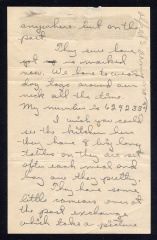 anywhere but on the
post.
They sure have
us marked
now. We have to wear
dog tags around our
neck all the time.
My number is
I wish you could
see the kitchen here
they have 8 big long
tables on they are set
after each meal and
boy are they pretty.
They have some
little cameras over at
the post exchange
which take a picture